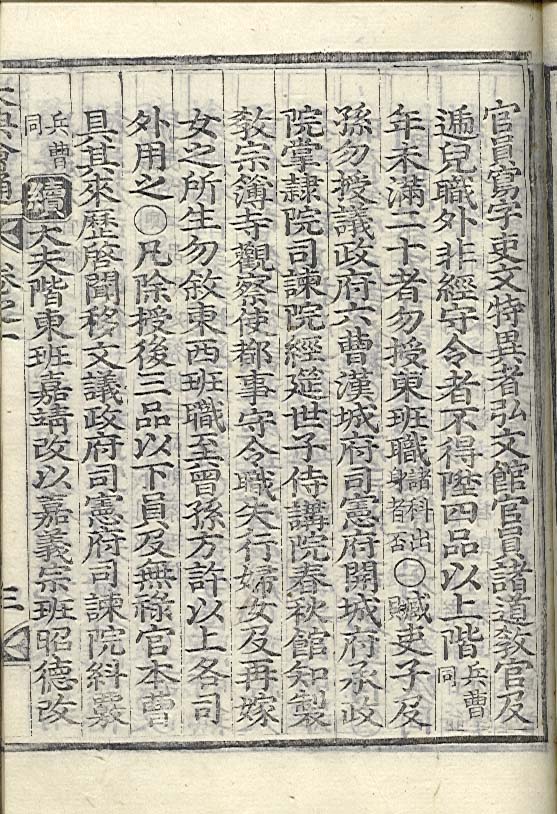 官員寫字吏文特異者弘文館官員諸道敎官及
遞兒職外非經守令者不得陞四品以上階兵曹同
年未滿二十者勿授東班職諸科出身者否○贓吏子及
孫勿授議政府六曹漢城府司憲府開城府承政
院掌隷院司諫院經筵世子侍講院春秋館知製
敎宗簿寺觀察使都事守令職失行婦女及再嫁
女之所生勿敘東西班職至曾孫方許以上各司
外用之○凡除授後三品以下員及無祿官本曹
具其來歷啓聞移文議政府司憲府司諫院糾覈
兵曹同續大夫階東班嘉靖改以嘉義宗班昭德改
大典會通 卷之一 三